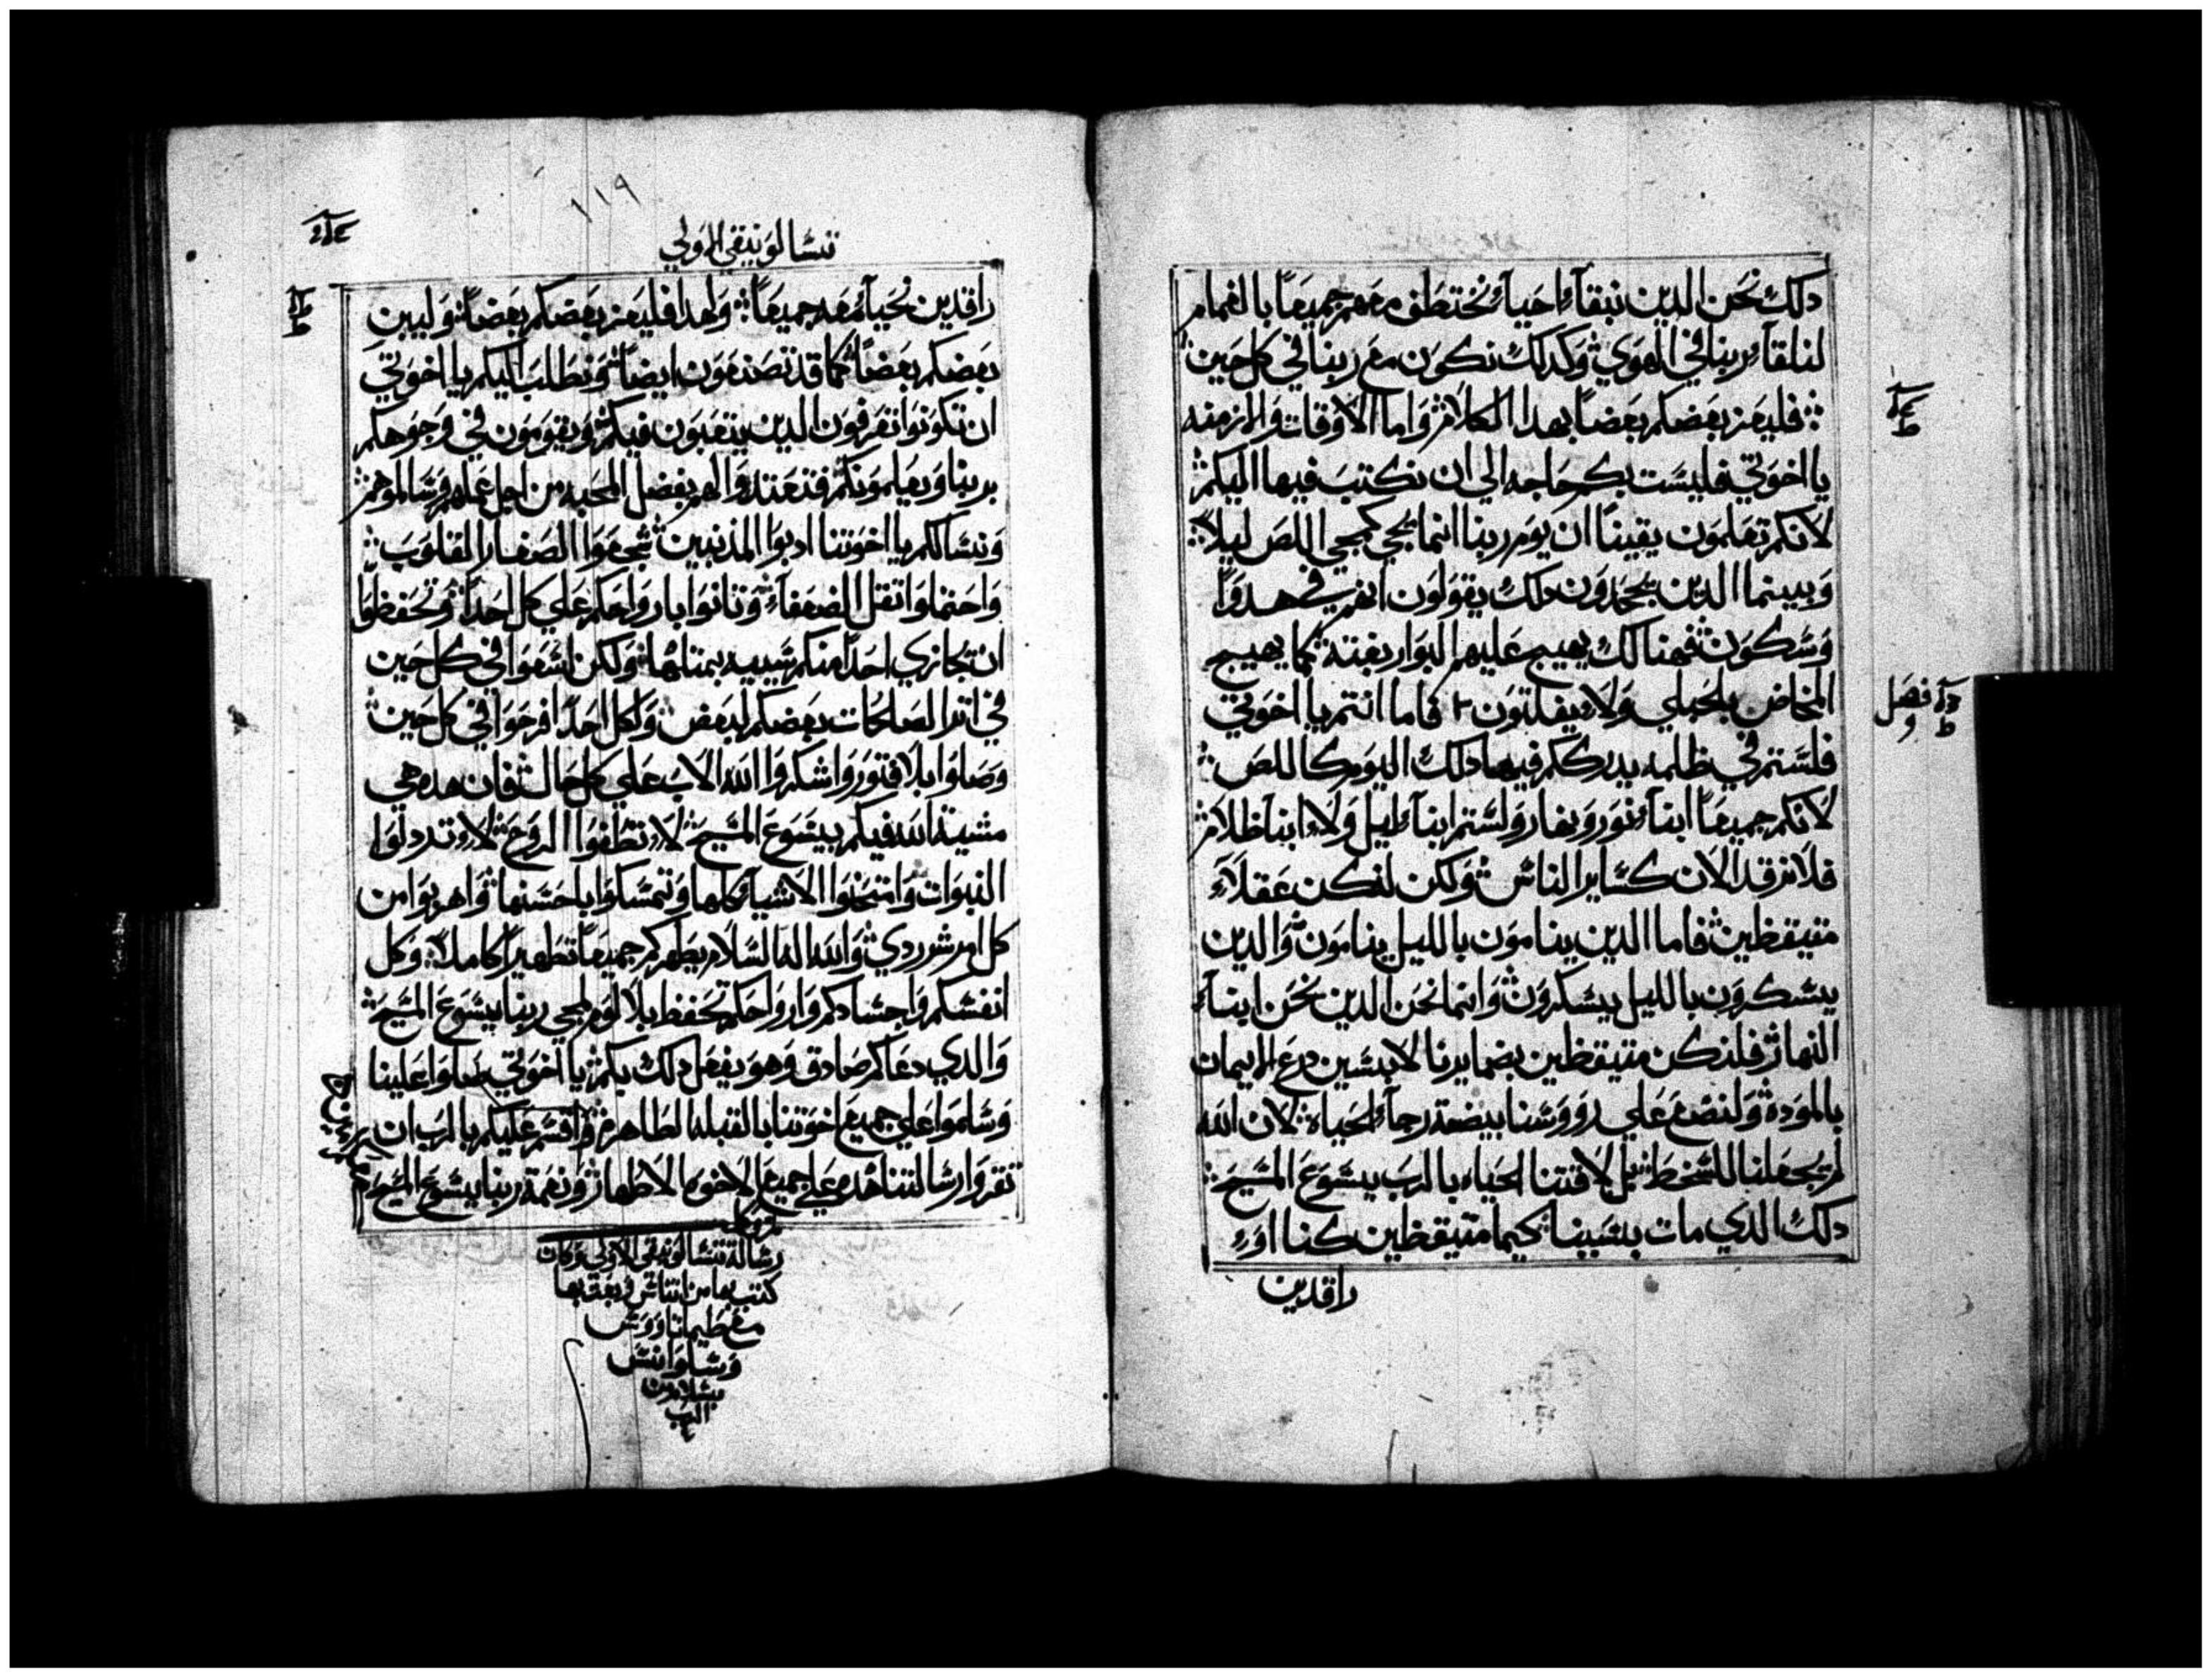 دلك نحن الدين نبقآء احيآء نختطف معهم جميعًا بالغمام
لنلقآء ربنا في الهوي وكدلك نكون مع ربنا في كل حين
فليعز بعضكم بعضًا بهدا الكلام واما الاوقات والازمنه
يا اخوتي فليست بكم حاجه الي ان نكتب فيها اليكم
لانكم تعلمون يقينًا ان يوم ربنا انما يجي كمجي اللص ليلًا
وبينما الدين يجحدون دلك يقولون انهم في هدوًا
وسكون فهنالك يهيج عليهم البوار بغتة كما يهيج
المخاض بالحبلي ولا يفلتون فاما انتم يا اخوتي
فصل
فلستم في ظلمه يدرككم فيها دلك اليوم كاللص
لانكم جميعًا ابنآء نور ونهار ولستم ابنآء ليل ولا ابنا ظلام
فلا نرقد الان كساير الناس ولكن لنكن عقلآء
متيقظين فاما الدين ينامون بالليل ينامون والدين
يسكرون بالليل يسكرون وانما نحن الدين نحن ابنآء
النهار فلنكن متيقظين بضمايرنا لابسين درع الايمان
بالمودة ولنضع علي رووسنا بيضة رجآء الحياة لان الله
لم يجعلنا للسخط بل لاقتنا الحياه بالرب يسوع المسيح
دلك الدي مات بسببنا لكيما متيقظين كنا او
راقدين
١١٩
تسالونيقي الاولي
راقدين نحيآء معه جميعًا ولهدا فليعز بعضكم بعضًا وليبن
بعضكم بعضًا كما قد تصنعون ايضًا ونطلب اليكم يا اخوتي
ان تكونوا تعرفون الدين يتعبون فيكم ويقومون في وجوهكم
بربنا ويعلمونكم فتعتدوا لهم بفضل المحبه من اجل عملهم وسالموهم
ونسالكم يا اخوتنا ادبوا المذنبين شجعوا الصغار القلوب
واحتملوا ثقل الضعفآء وتانوا بارواحكم علي كل احد وتحفظوا
ان يجازي احدًا منكم سييه بمثلها ولكن اسعوا في كل حين
في اثر الصالحات بعضكم لبعض ولكل احد افرحوا في كل حين
وصلوا بلا فتور واشكروا الله الاب علي كل حال فان هده هي
مشية الله فيكم بيسوع المسيح لا تطفوا الروح لا تردلوا
النبوات وامتحنوا الاشيآء كلها وتمسكوا باحسنها واهربوا من
كل امر شر ردي والله اله السلام يطهركم جميعًا تطهيرًا كاملًا وكل
انفسكم واجسادكم وارواحكم تحفظ بلا لوم لمجي ربنا يسوع المسيح
والدي دعاكم صادق وهو يفعل دلك بكم يا اخوتي صلوا علينا
وسلموا علي جميع اخوتنا بالقبله الطاهره واقسم عليكم بالرب ان
تقروا رسالتنا هده علي جميع الاخوه الاطهار ونعمة ربنا يسوع المسيح
رسالة تسالونيقي الاولي وكان
كتب بها من اتناس وبعث بها
مع طيماتاووس
وسلوانس
بسلام من
الرب